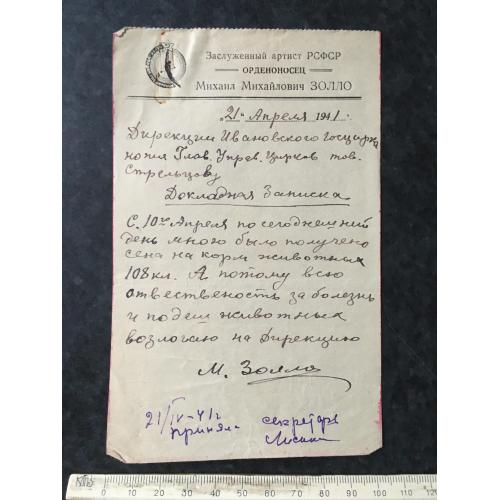 Заслуженный артист РСФСР
ОРДЕНОНОСЕЦ
Михаил Михайлович ЗОЛЛО
„21“ Апреля 1941.
Дирекции Ивановского Госцирка
копия Глав. Управ. Цирков тов.
Стрельцову
Докладная Записка
С 10го Апреля по сегоднешний
день мною было получено
сена на корм животных
108 кл. А потому всю
отвественость за болезнь
и подеш животных
возлогаю на Дирекцию
М. Золло
21/IV-41г секретарь
приняла
0 10 20 30 40 50 60 70 80 90 100 110 120